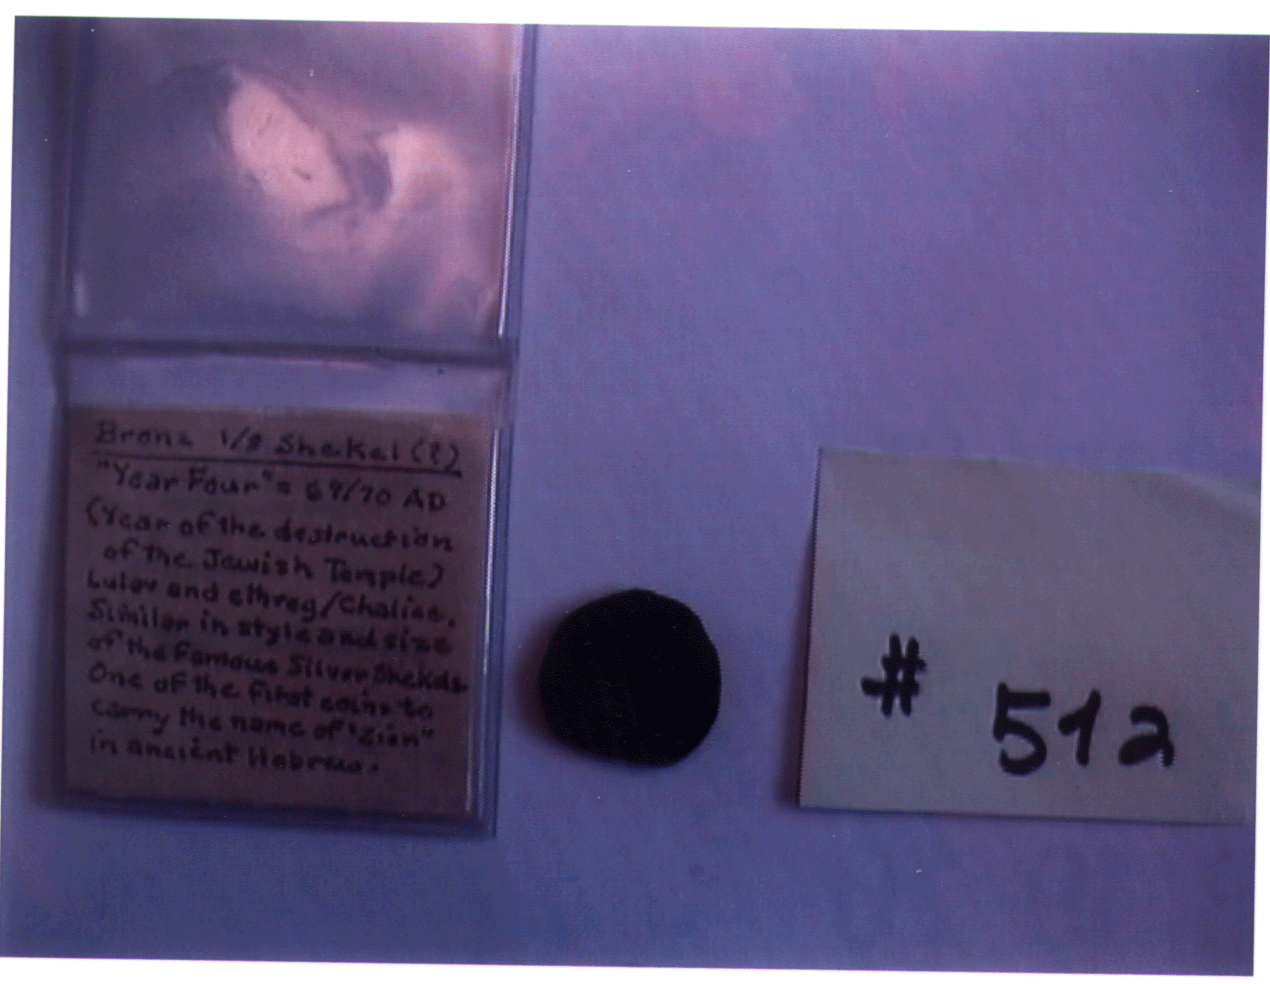 Bronz 1/8 Shekel (?)
"Year Four" = 69/70 AD
(Year of the destruction
of the Jewish Temple)
Lulav and ethrog/Chalice.
Similar in style and size
of the famous Silver Shekels
One of the first coins to
carry the name of "Zion"
in ancient Hebrew.
# 512